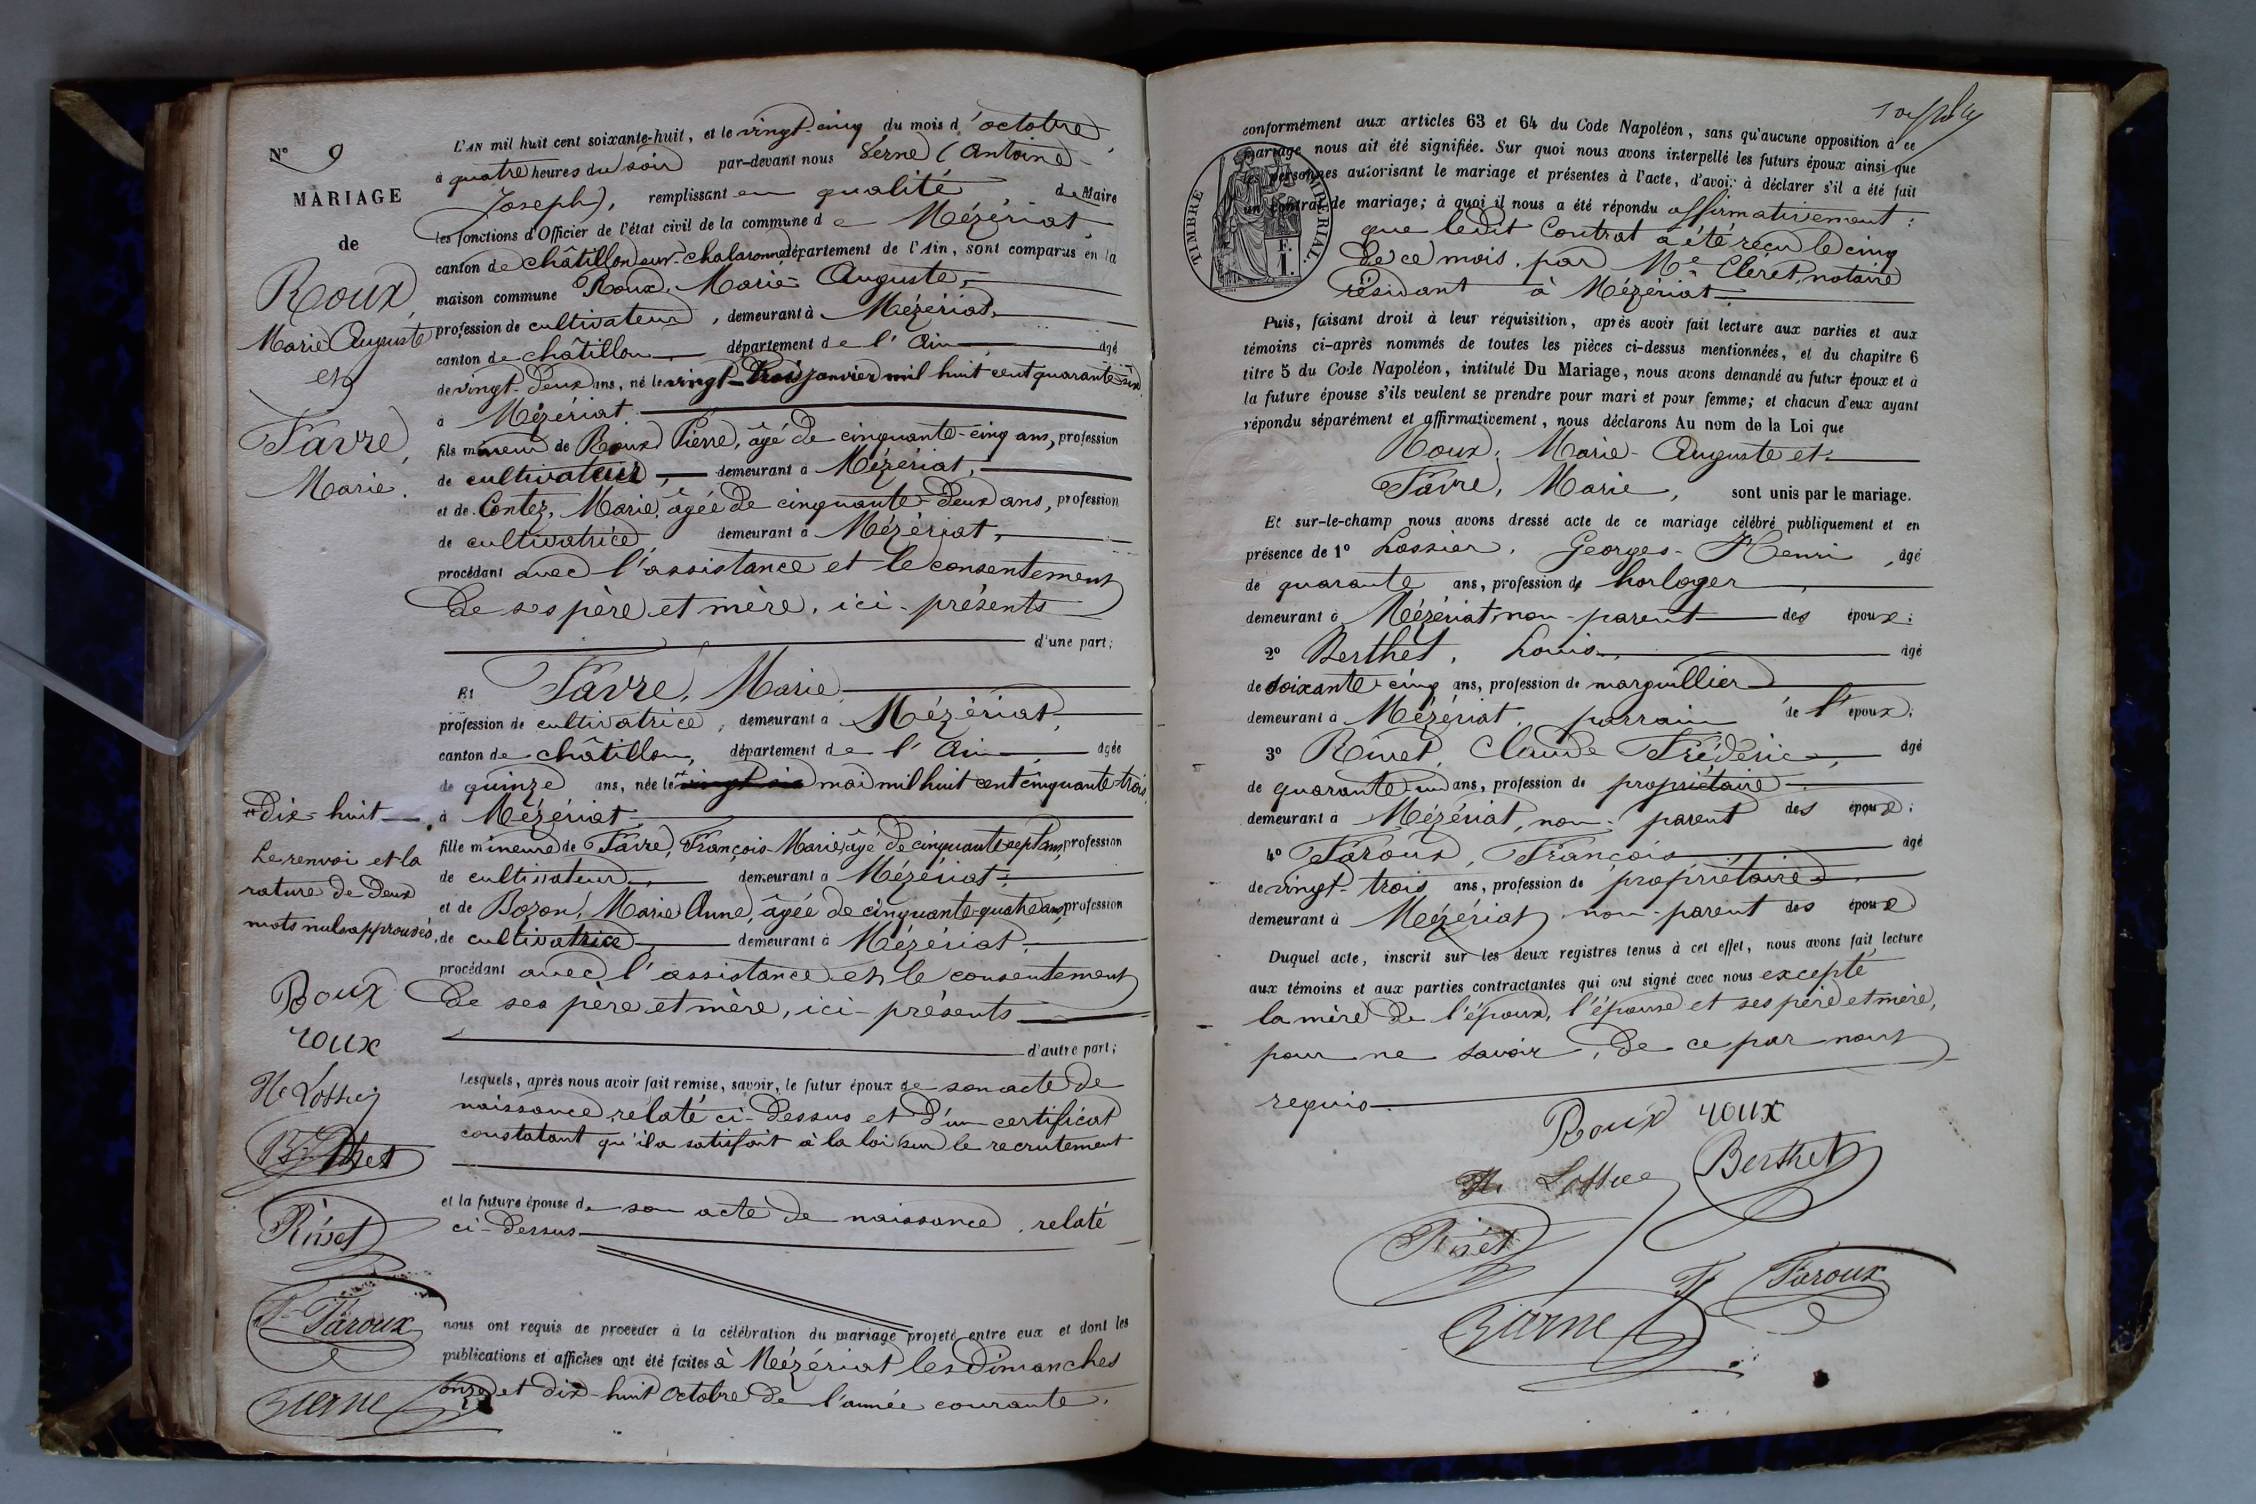 N° 9
MARIAGE
de
Roux,
Marie Auguste
et
Favre,
Marie.
L'AN mil huit cent soixante-huit, et le vingt-cinq du mois d'octobre
à quatre heures du soir par-devant nous (Antoine-
Joseph), remplissant en qualité de Maire
les fonctions d'Officier de l'état civil de la commune de Mézériat,
canton de Châtillon-sur-Chalaronne département de l'Ain, sont comparus en la
maison commune Roux, Marie-Auguste,
profession de cultivateur, demeurant à Mézériat,
canton de Châtillon département de l'Ain âgé
de vingt-deux ans, né le vingt-trois janvier mil huit cent quarante-six
à Mézériat
fils mineur de Roux Pierre, âgé de cinquante-cinq ans, profession
de cultivateur, demeurant à Mézériat,
et de Contez, Marie, âgée de cinquante-deux ans, profession
de cultivatrice demeurant à Mézériat,
procédant avec l'assistance et le consentement
de ses père et mère, ici-présents
d'une part;
Et Favre, Marie
profession de cultivatrice, demeurant à Mézériat,
canton de Châtillon, département de l'Ain âgée
de quinze ans, née le vingt six mai mil huit cent cinquante-trois
à Mézériat,
fille mineure de Favre, François-Marie, âgé de cinquante-sept ans, profession
de cultivateur, demeurant à Mézériat,
et de Bozon, Marie Anne, âgée de cinquante-quatre ans, profession
de cultivatrice demeurant à Mézériat,
procédant avec l'assistance et le consentement
de ses père et mère, ici-présents
d'autre part;
Lesquels, après nous avoir fait remise, savoir, le futur époux de son acte de
naissance relaté ci-dessus et d'un certificat
constatant qu'il a satisfait à la loi sur le recrutement
et la future épouse de son acte de naissance, relaté
ci-dessus
nous ont requis de procéder à la célébration du mariage projeté entre eux et dont les
publications et affiches ont été faites à Mézériat les dimanches
onze et dix-huit octobre de l'année courante.
Dix-huit
Le renvoi et la
rature de deux
mots nuls approuvés.
Roux
roux
Berthet
Rivet
F. Faroux
conformément aux articles 63 et 64 du Code Napoléon, sans qu'aucune opposition à ce
mariage nous ait été signifiée. Sur quoi nous avons interpellé les futurs époux ainsi que
les personnes autorisant le mariage et présentes à l'acte, d'avoir à déclarer s'il a été fait
un contrat de mariage; à quoi il nous a été répondu affirmativement:
que ledit Contrat a été reçu le cinq
de ce mois, par Me Cléret, notaire
résidant à Mézériat
TIMBRE IMPÉRIAL.
F.
I.
Puis, faisant droit à leur réquisition, après avoir fait lecture aux parties et aux
témoins ci-après nommés de toutes les pièces ci-dessus mentionnées, et du chapitre 6
titre 5 du Code Napoléon, intitulé Du Mariage, nous avons demandé au futur époux et à
la future épouse s'ils veulent se prendre pour mari et pour femme; et chacun d'eux ayant
répondu séparément et affirmativement, nous déclarons Au nom de la Loi que
Roux, Marie-Auguste et
Favre, Marie, sont unis par le mariage.
Et sur-le-champ nous avons dressé acte de ce mariage célébré publiquement et en
présence de 1° Georges-Henri, âgé
de quarante ans, profession de horloger,
demeurant à Mézériat, non-parent des époux;
2° Berthet, Louis, âgé
de soixante-cinq ans, profession de marguillier
demeurant à Mézériat, parrain de l'époux;
3° Rivet, Claude Frédéric, âgé
de quarante-un ans, profession de propriétaire
demeurant à Mézériat, non-parent des époux;
4° Faroux, François âgé
de vingt-trois ans, profession de propriétaire
demeurant à Mézériat non-parent des époux
Duquel acte, inscrit sur les deux registres tenus à cet effet, nous avons fait lecture
aux témoins et aux parties contractantes qui ont signé avec nous excepté
la mère de l'époux, l'épouse et ses père et mère,
pour ne savoir, de ce par nous
requis
Roux roux
Berthet
Rivet
F. Faroux